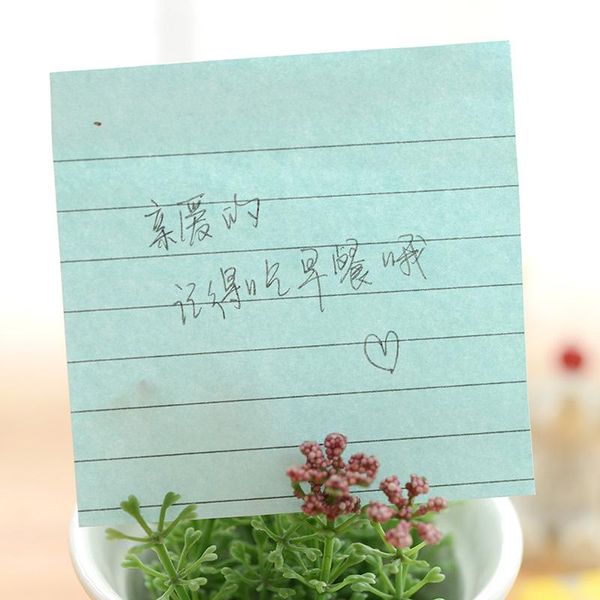 亲爱的
记得吃早餐哦
♡